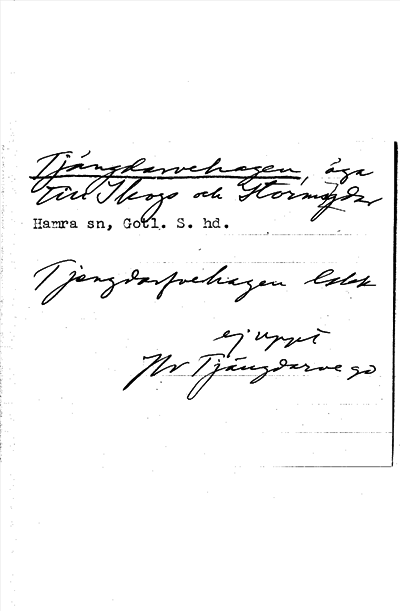 Tjängdarvehagen, äga
till Skogs och Stormyder
Hamra sn, Gotl. S. hd.
Tjengdarfvehagen
ej uppt
Hv Tjängdarve gd